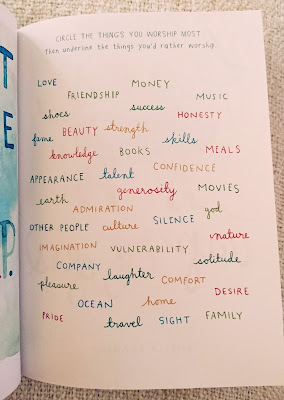 CIRCLE THE THINGS YOU WORSHIP MOST.
Then underline the things you'd rather worship.
LOVE MONEY
FRIENDSHIP MUSIC
shoes success HONESTY
fame BEAUTY strength skills
knowledge BOOKS MEALS
APPEARANCE talent CONFIDENCE
earth generosity MOVIES
ADMIRATION god
OTHER PEOPLE culture SILENCE
nature
IMAGINATION VULNERABILITY
COMPANY solitude
pleasure laughter COMFORT
OCEAN home DESIRE
PRIDE travel SIGHT FAMILY
T
E
P.